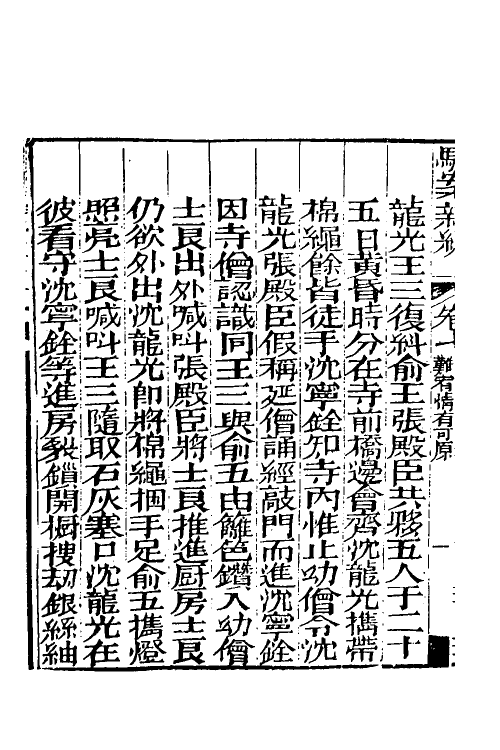 駁案新編 卷十 難宥情有可原 一
龍光王三復糾俞王張殿臣共夥五人于二十
五日黃昏時分在寺前橋邊會齊沈龍光攜帶
棉繩餘皆徒手沈寧銓知寺內惟止幼僧令沈
龍光張殿臣假稱延僧誦經敲門而進沈寧銓
因寺僧認識同王三與俞五由籬笆鑽入幼僧
士良出外喊叫張殿臣將士良推進厨房士良
仍欲外出沈龍光即將棉繩捆手足俞五攜燈
照亮士良喊叫王三隨取石灰塞口沈龍光在
彼看守沈寧銓等進房裂鎖開櫥搜刧銀絲紬